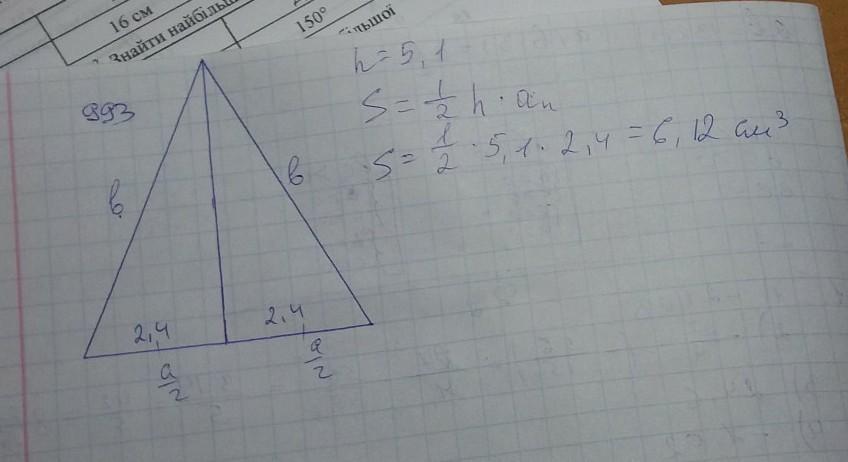 16 см
Знайти найбільш
150°
більшої
993
h = 5,1
S = 1/2 h · aₕ
S = 1/2 · 5,1 · 2,4 = 6,12 см³
в
в
2,4
2,4
a/2
a/2